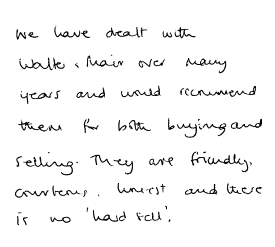 We have dealt with
Walter & Mair over many
years and would recommend
them for both buying and
selling. They are friendly,
courteous, honest and there
is no 'hard sell'.